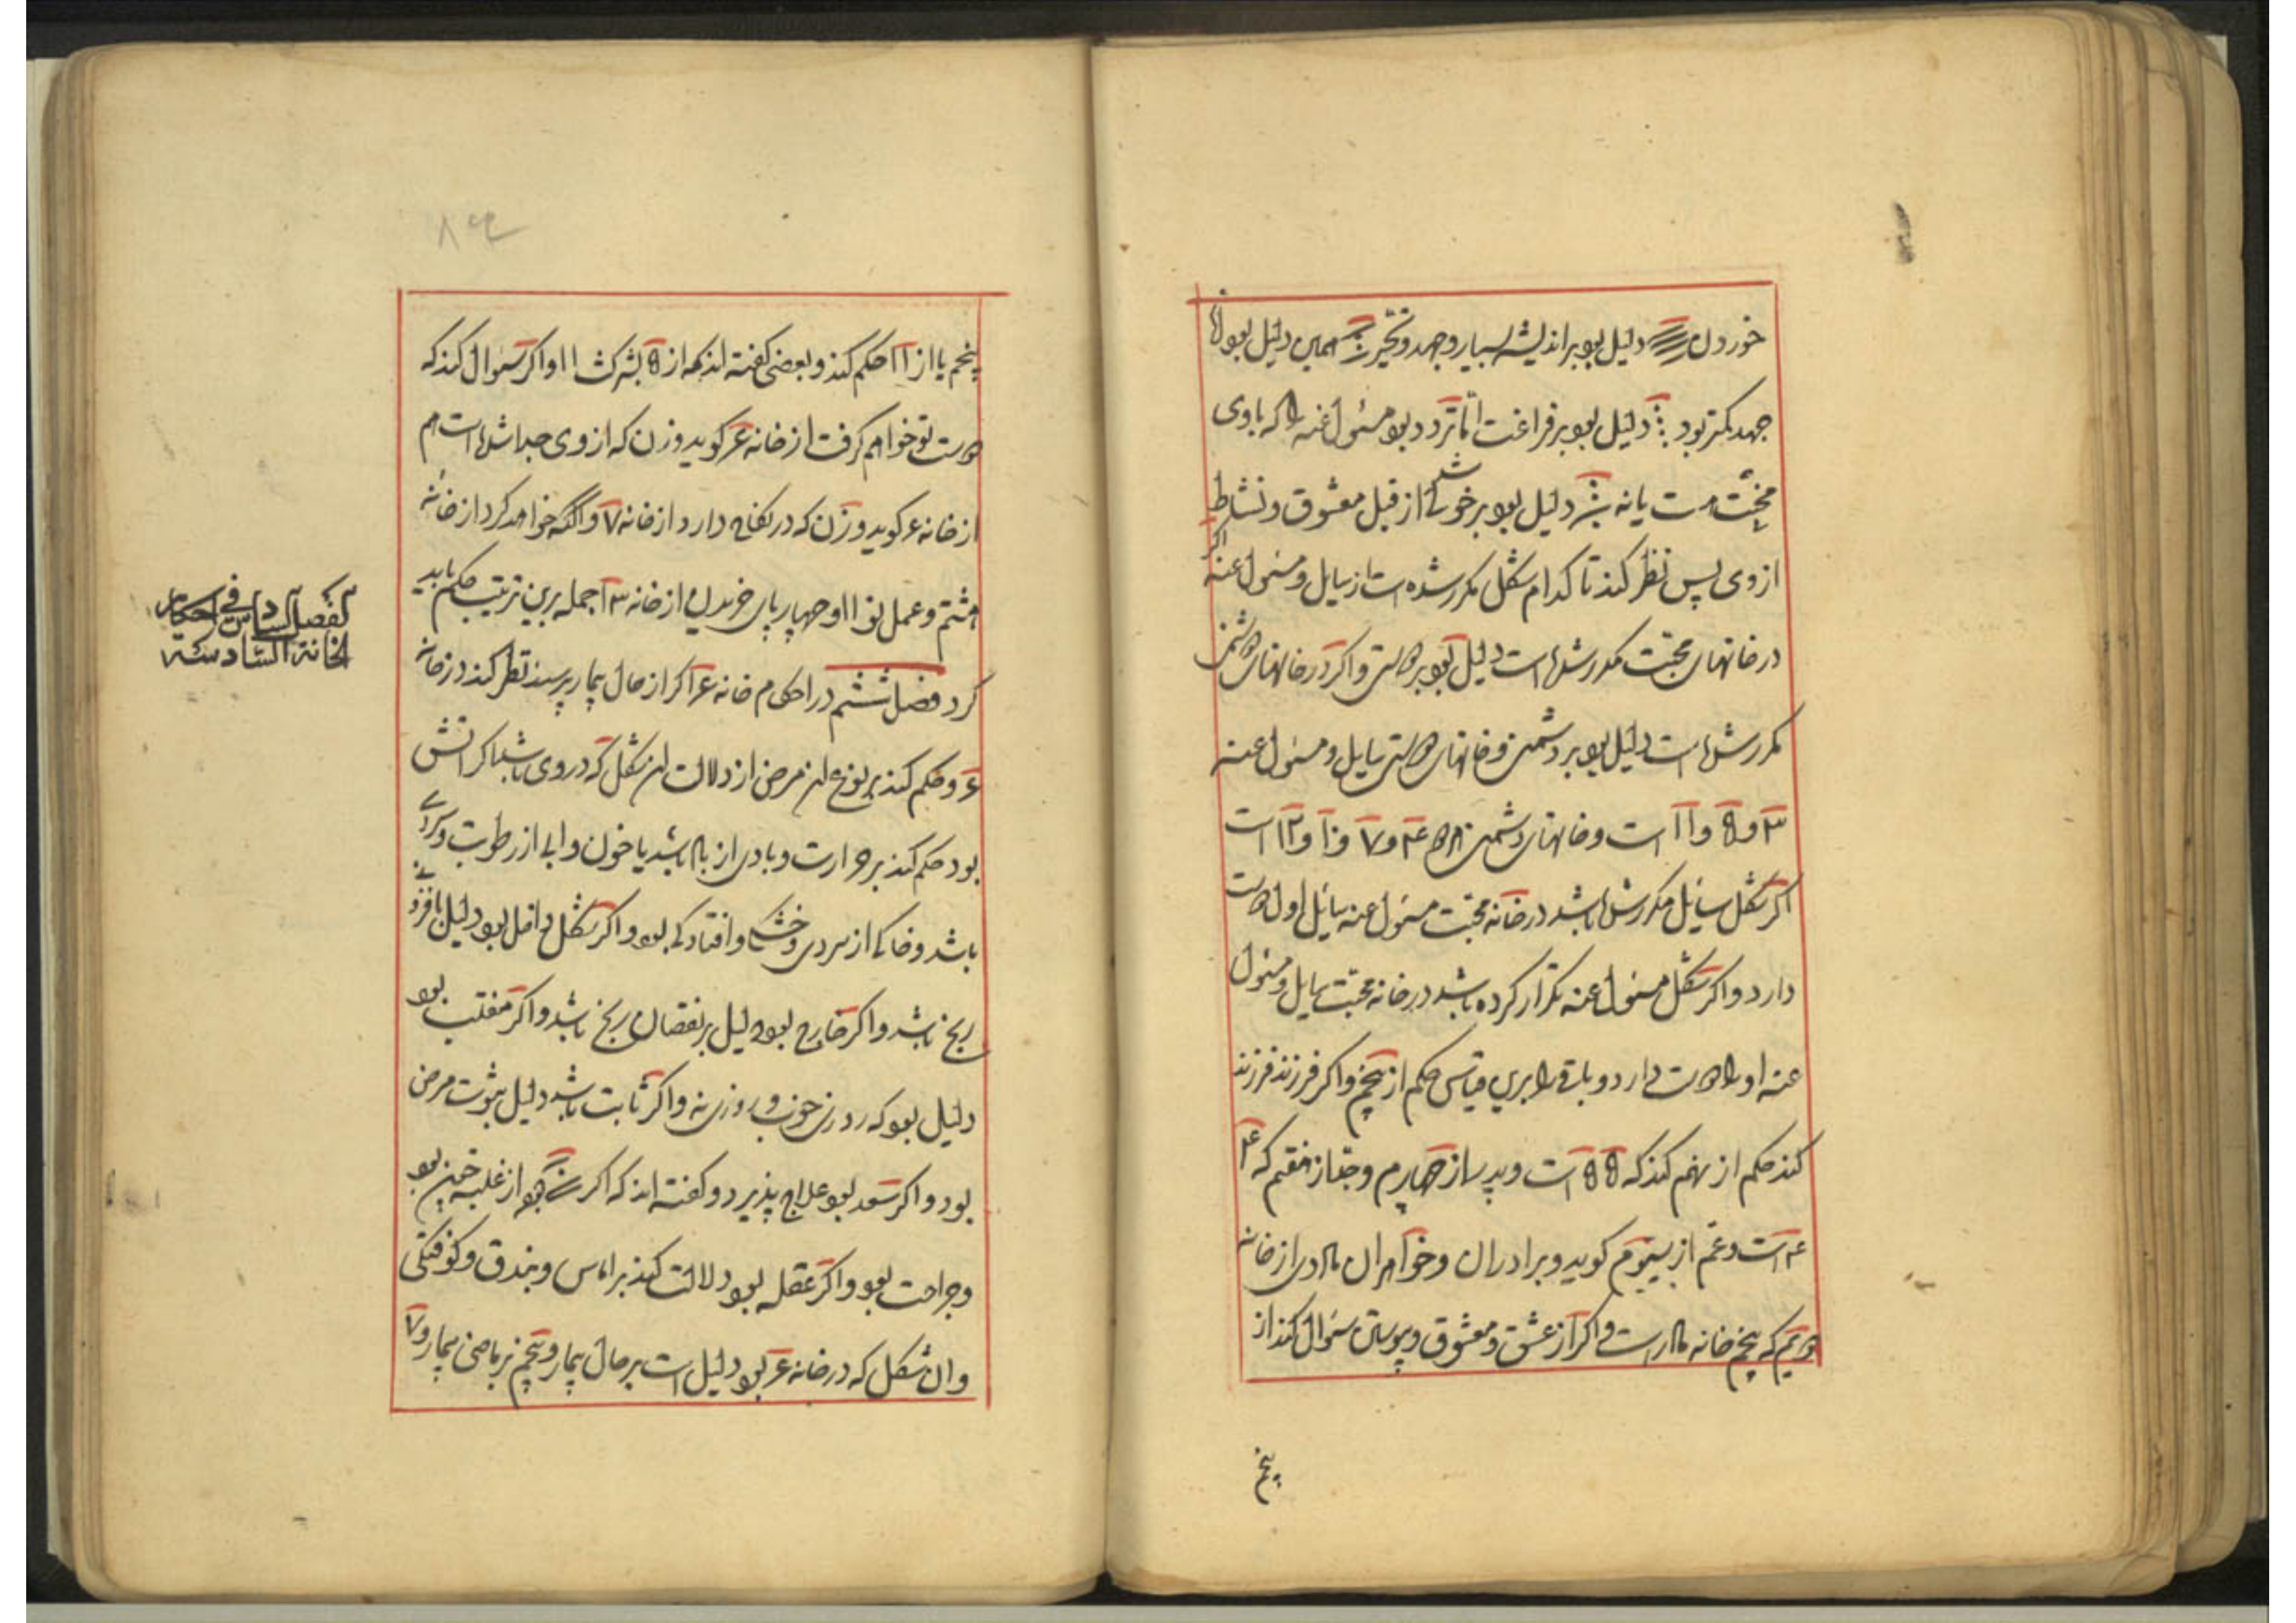 خوردن دلیل بود بر اندیشه بسیار و جهد و تحیر همین دلیل بود اما
جهد کمتر بود دلیل بود بر فراغت اما تردد بود مسئول عنه را که با وی
محبت هست یا نه دلیل بود بر خوشی از قبل معشوق و نشاط
از وی پس نظر کند تا کدام شکل مکرر شده است از سایل و مسئول عنه اکر
در خانهای محبت مکرر شده است دلیل بود بر دوستی و اکر در خانهای دشمنی
مکرر شده است دلیل بود بر دشمنی و خانهای دوستی سایل و مسئول عنه
۳ و ۵ و ۱۱ است و خانهای دشمنی ۴ و ۷ و ۱۰ و ۱۲ است
اکر شکل سائل مکرر شده باشد در خانه محبت مسئول عنه سائل او را دوست
دارد و اکر شکل مسئول عنه تکرار کرده باشد در خانه محبت سایل و مسئول
عنه او را دوست دارد و باقی را برین قیاس حکم از پنجم و اکر فرزند فرزند
کند حکم از نهم کند که ۵ ۵ است و پدر از چهارم و جد از هفتم که ۴
۴ است و عم از سیوم کوید و برادران و خواهران مادری از خانه
هفتم که پنجم خانه مادر است و اکر از عشق و معشوق و پوستان سئوال کند از
پنجم
پنجم یا از ۱۱ حکم کند و بعضی کفته اند که از ۵ بشرکت ۱۱ و اکر سئوال کند که
دوست تو خواهم کرفت از خانه ۶ کوید و زن که از وی جدا شده است هم
از خانه ۶ کوید و زن که در نکاح دارد از خانه ۷ و آنکه خواهد کرد از خانه
هشتم و عمل نو ۱۱ و چهارپای خریدن از خانه ۱۳ جمله برین ترتیب حکم باید
کرد فصل ششم در احکام خانه ۶ اکر از حال بیمار پرسند نظر کند در خانه
۶ و حکم کند بر نوع آن مرض از دلالت آن شکل که در وی باشد اکر آتشی
بود حکم کند بر حرارت و بادی از باد باشد یا خون و آبی از رطوبت و سردی
باشد و خاکی از سردی و خشکی و افتادکی بود و اکر شکل داخل بود دلیل بافزونی
رنج باشد و اکر خارج بود دلیل بر نقصان رنج باشد و اکر منقلب بود
دلیل بود که روزی خوب و روزی نه و اکر ثابت باشد دلیل ثبوت مرض
بود و اکر سعد بود علاج پذیرد و کفته اند که اکر بود از غلبه خون بود
و جراحت بود و اکر عقله بود دلالت کند بر آماس و بندق و کوفتکی
و آن شکل که در خانه ۶ بود دلیل است بر حال بیمار و پنجم بر ماضی بیمار و ۷
الفصل السادس فی احکام
الخانة السادسة